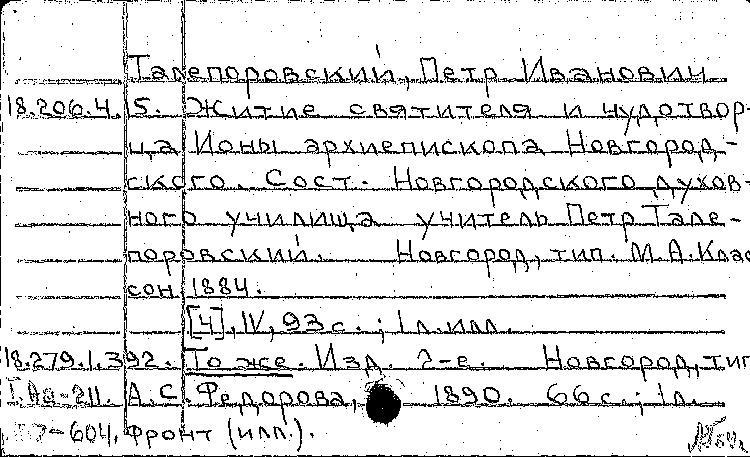 Талепоровский, Петр Иванович
18.206.4.5. Житие святителя и чудотвор-
ца Ионы архиепископа Новгород-
ского. Сост. Новгородского духов-
ного училища учитель Петр Тале-
поровский. Новгород, тип. М.А.Клас
сон 1884.
[4], IV, 93 с.; 1 л. илл.
18.279.1.392. То же. Изд. 2-е. Новгород, тип
А.С.Федорова, 1890. 66 с.; 1 л.
-604. фронт (илл.).